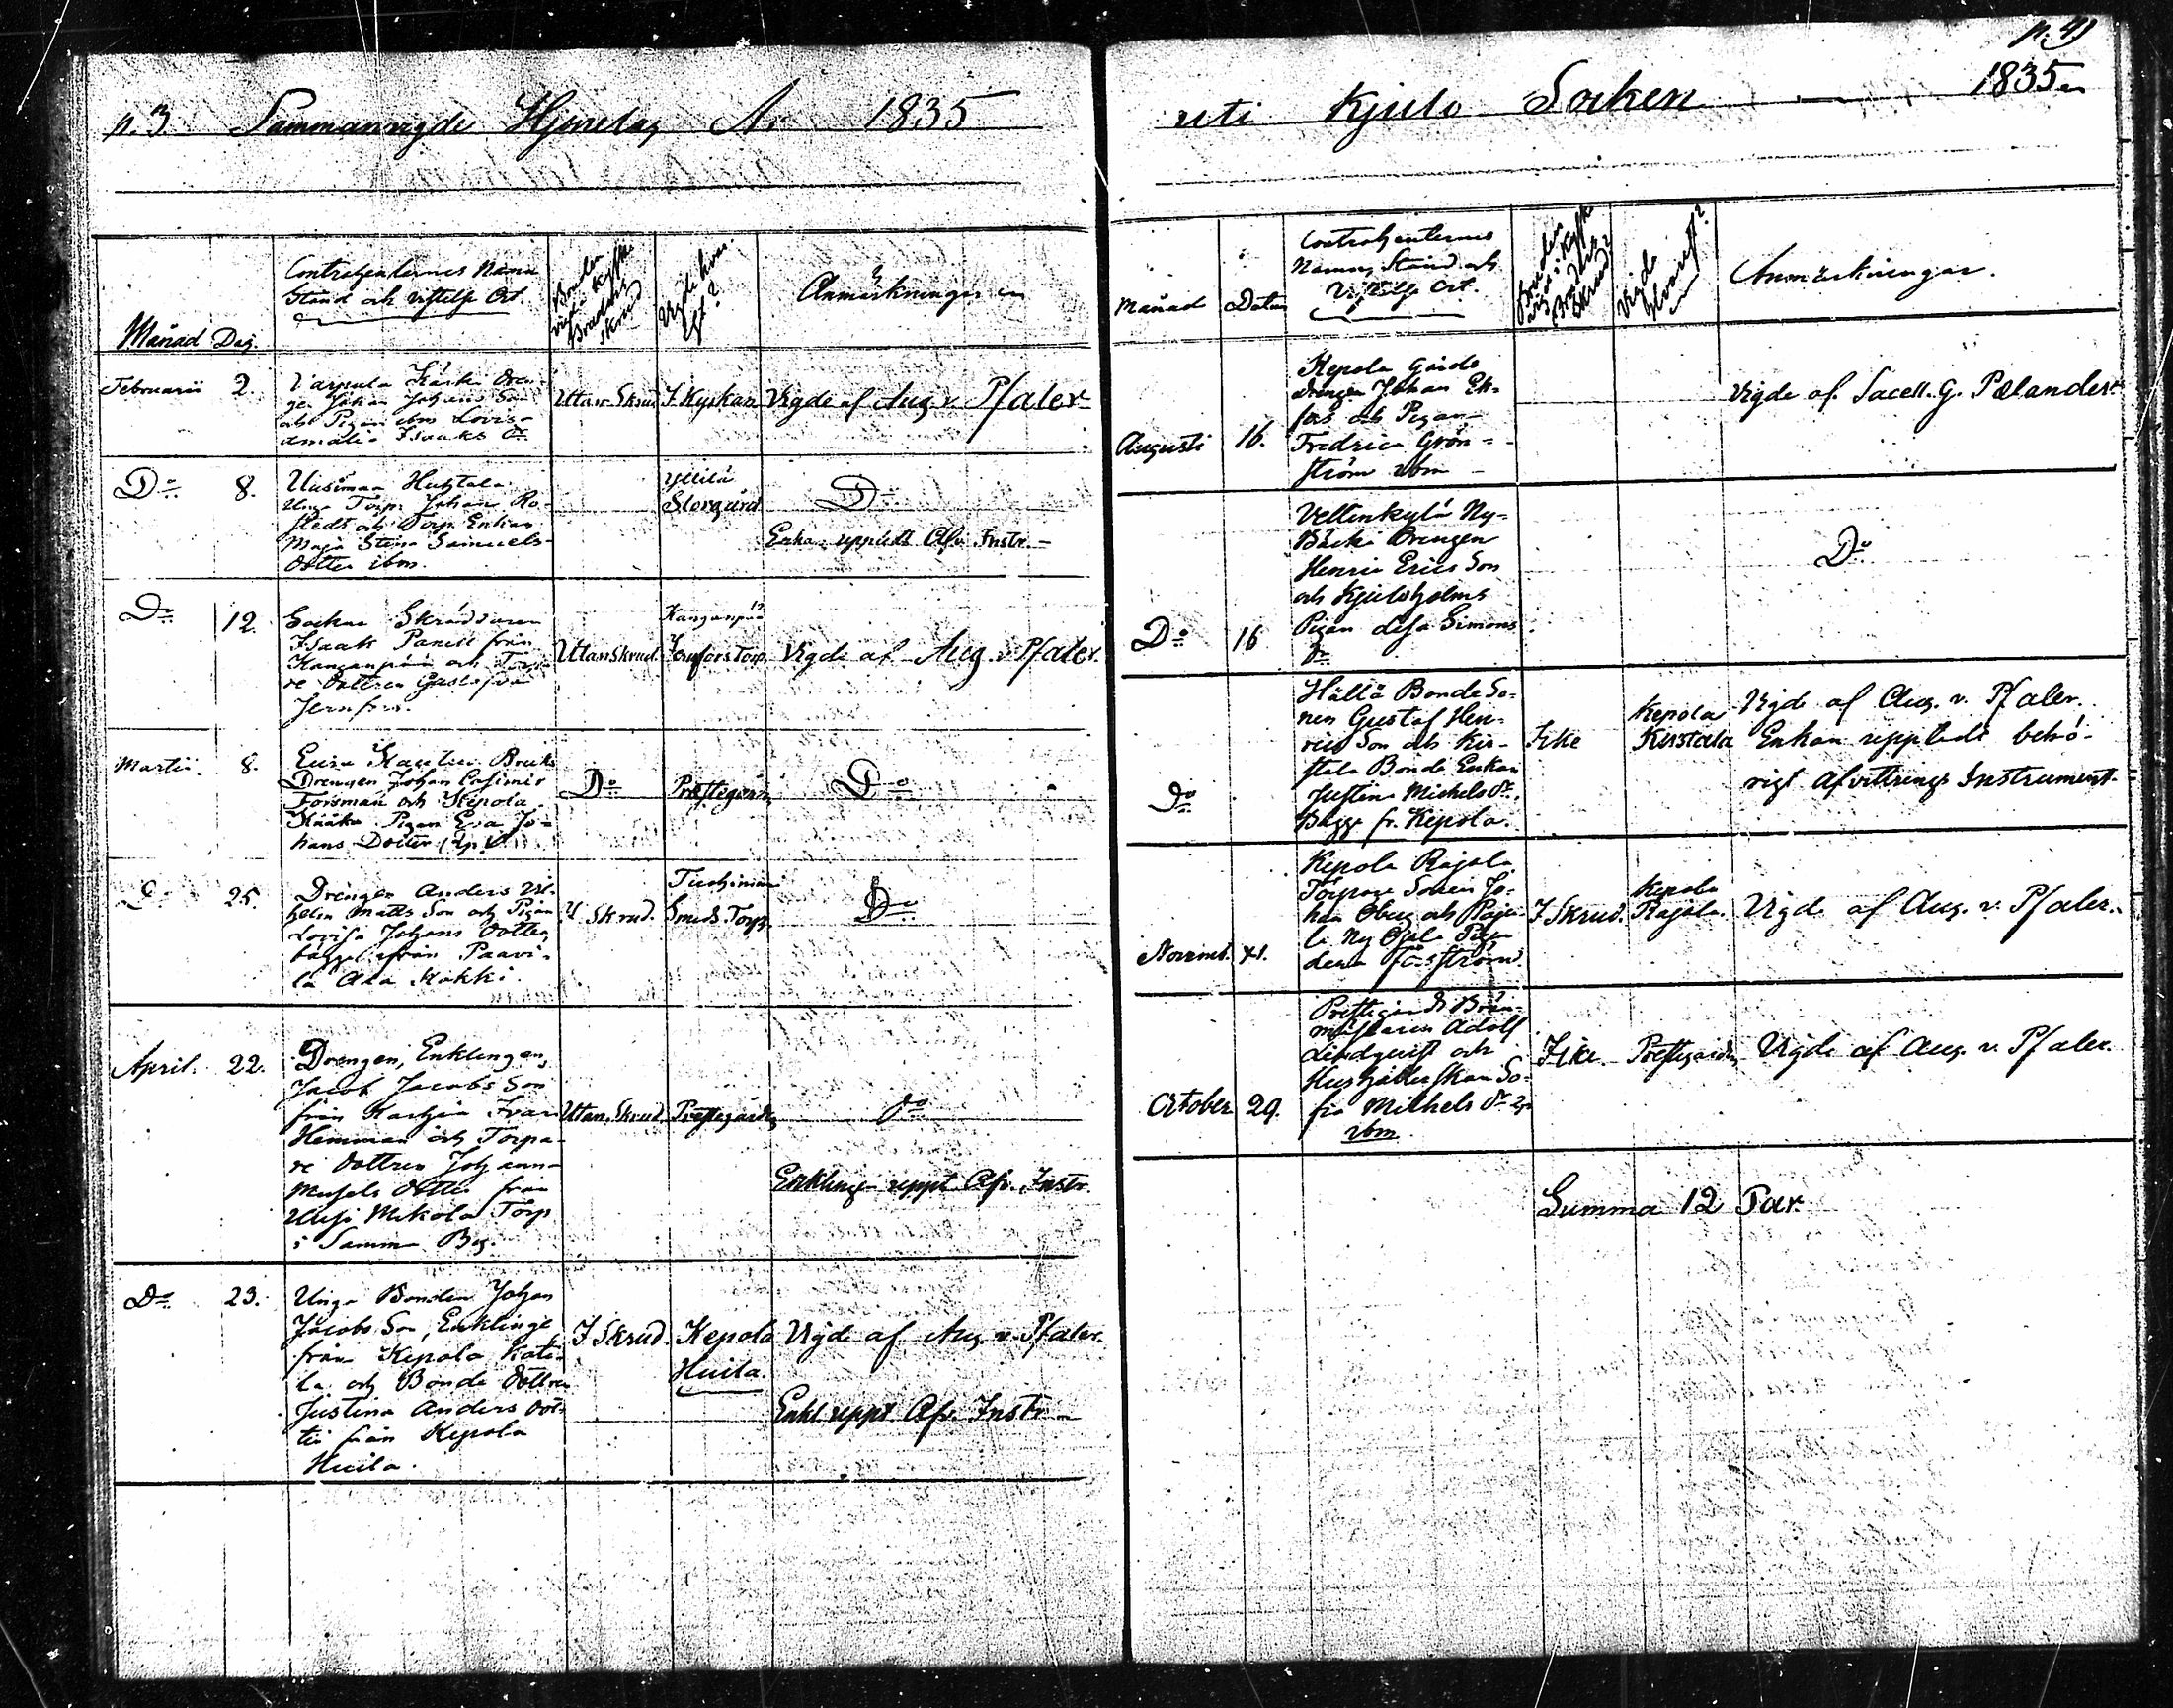 p. 3 Sammanvigde Hjonelag År 1835
Månad Dag.
Contrahenternes Namn
Stånd och vistelse Ort.
Bruden
vigd i Kyrko
Brudehr
Skrud
Vigde hvar
Anmärkningar
Februarii 2.
Drän-
gen Johan Johans Son
och Pigan ibm Lovis-
amalia Isaaks Dr.
Utan Skrud
I Kyrkan
Vigde af Aug. v. Pfaler
Do 8.
Uusimaa Huhtala
Unga Torp. Johan Ro-
stedt och Torp. Enkan
Maja Stina Samuels-
dotter ibm.
Yttilä
Storgård
Do
Enka. uppvist Afv. Instr.
Do 12.
Sockne Skräddaren
Isaak Panell från
Kanganpää och Torpa-
re Dottren Gustafva
Jernfors.
Utan Skrud.
Kanganpää
Jernfors Torp.
Vigde af Aug. v. Pfaler.
Martii 8.
Eura Kauttua Bruks
Drengen Johan Casimir
Forsman och Kepola
Pigan Eva Jo-
hans Dotter
Do
Prestegården
Do
Do 25.
Drengen Anders Vil-
helm Matts Son och Pigan
Lovisa Johans Dotter,
bägge från Paavi-
la Ala Kakki.
U. Skrud.
Smeds Torp.
Do
April. 22.
Drengen, Enklingen,
Jacob Jacobs Son
från Karhia Ivari
Hemman och Torpa-
re Dottren Johanna
Dotter från
Uusi Mikola Torp
i Samma By.
Utan Skrud
Prestegården
do
Enklingen uppt. Afv. Instr.
Do 23.
Unga Bonden Johan
Jacobs Son, Enkling,
från Kepola Kati-
la och Bonde Dottren
Justina Anders Dot-
ter från Kepola
Huila.
I Skrud.
Kepola
Huila.
Vigde af Aug. v. Pfaler.
Enkl. uppt. Afv. Instr.
p. 4)
uti Kjulo Socken 1835
Månad Datum
Contrahenternes
Namn, Stånd och
Vistelse Ort.
Bruden
vigd i Kyrko
Brudehr
Skrud?
Vigde
hvar?
Anmärkningar.
Augusti 16.
Kepola Gårds
Drengen Johan Ek-
fors och Pigan
Fredrica Grön-
ström ibm
Vigde af Sacell. G. Pålander.
Do 16
Vellinkylä Ny-
Bäcki Drengen
Henric Erics Son
och Kjuloholms
Pigan Lisa Simons
Dr.
Do
Do
Hällä Bonde So-
nen Gustaf Hen-
rics Son och Kir-
stala Bonde Enkan
Justina Michels Dr.
Bägge fr. Kepola.
Icke
Kepola
Kirstala
Vigde af Aug. v. Pfaler.
Enkan uppteede behö-
rigt Afvittrings Instrument.
Novemb.
Kepola Rajala
Torpare Sonen Jo-
han Öberg och Raja-
la Ny Pigan
Lena Forsström.
I Skrud.
Kepola
Rajala.
Vigde af Aug. v. Pfaler.
October 29.
Prestegårds Brän-
mästaren Adolf
Lindqvist och
Hushållerskan So-
fia Mikhels Dr.
ibm.
Icke.
Prestegården
Vigde af Aug. v. Pfaler.
Summa 12 Par.